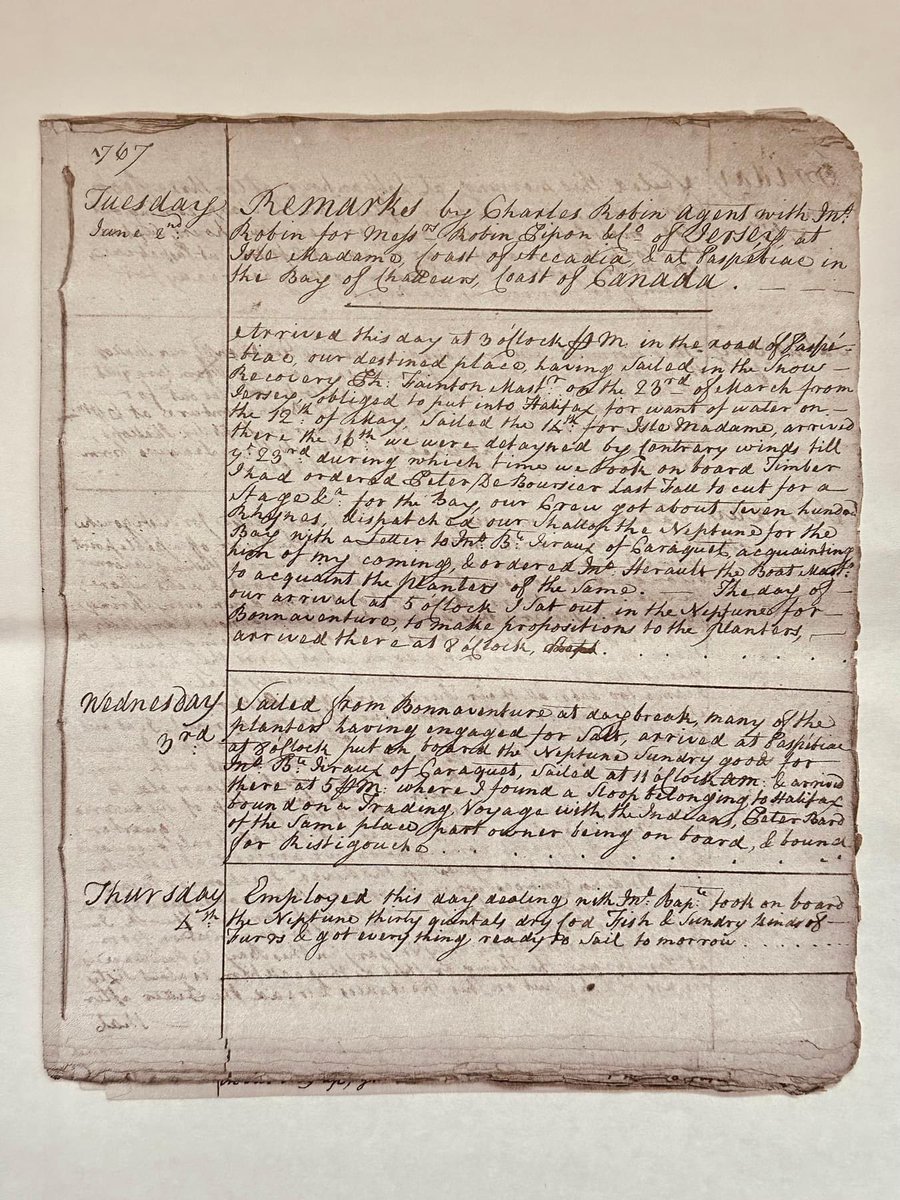 1767
Tuesday
June 2nd
Remarks by Charles Robin Agent with Jno.
Robin for Messrs Robin Pipon & Co of Jersey at
Isle Madame, Coast of Accadia, & at Paspébiac in
the Bay of Chaleurs, Coast of Canada.
Arrived this day at 3 o'Clock PM. in the road of Paspé-
biac, our destined place, having Sailed in the Snow
Recovery Ph: Fainton Mastr. on the 23rd of March from
Jersey, obliged to put into Halifax for want of water on
the 12th. of May, Sailed the 14th. for Isle Madame, arrived
there the 16th we were detayned by Contrary winds till
ye. 23rd during which time we took on board Timber
I had ordered Peter De Bourcier Last Fall to cut for a
Stage &a for the Bay, our Crew got about Seven hundd
Rhynes, dispatched our Shallop the Neptune for the
Bay with a Letter to Jno. Bte Giraux of Caraquet, acquainting
him of my coming, & ordered Jno. Herault the Boat Mastr.
to acquaint the planters of the Same. The day of
our arrival at 5 o'Clock I Sat out in the Neptune for
Bonnaventure to make propositions to the planters,
arrived there at 8 o'Clock,
Wednesday
3rd.
Sailed from Bonnaventure at daybreak, many of the
planters having engaged for Salt, arrived at Paspibiac
at 8 o'Clock put on board the Neptune Sundry good for
Jno. Bte Giraux of Caraquet, Sailed at 11 o'Clock am. & arrived
there at 5 PM. where I found a Sloop belonging to Halifax
bound on a Trading Voyage with the Indians, Peter Bard
of the Same place part owner being on board, & bound
for Ristigouche
Thursday
4th
Employed this day dealing with Jno. Bapte took on board
the Neptune thirty quintals dry Cod Fish & Sundry kinds of
Furrs & got every thing ready to Sail to morrow